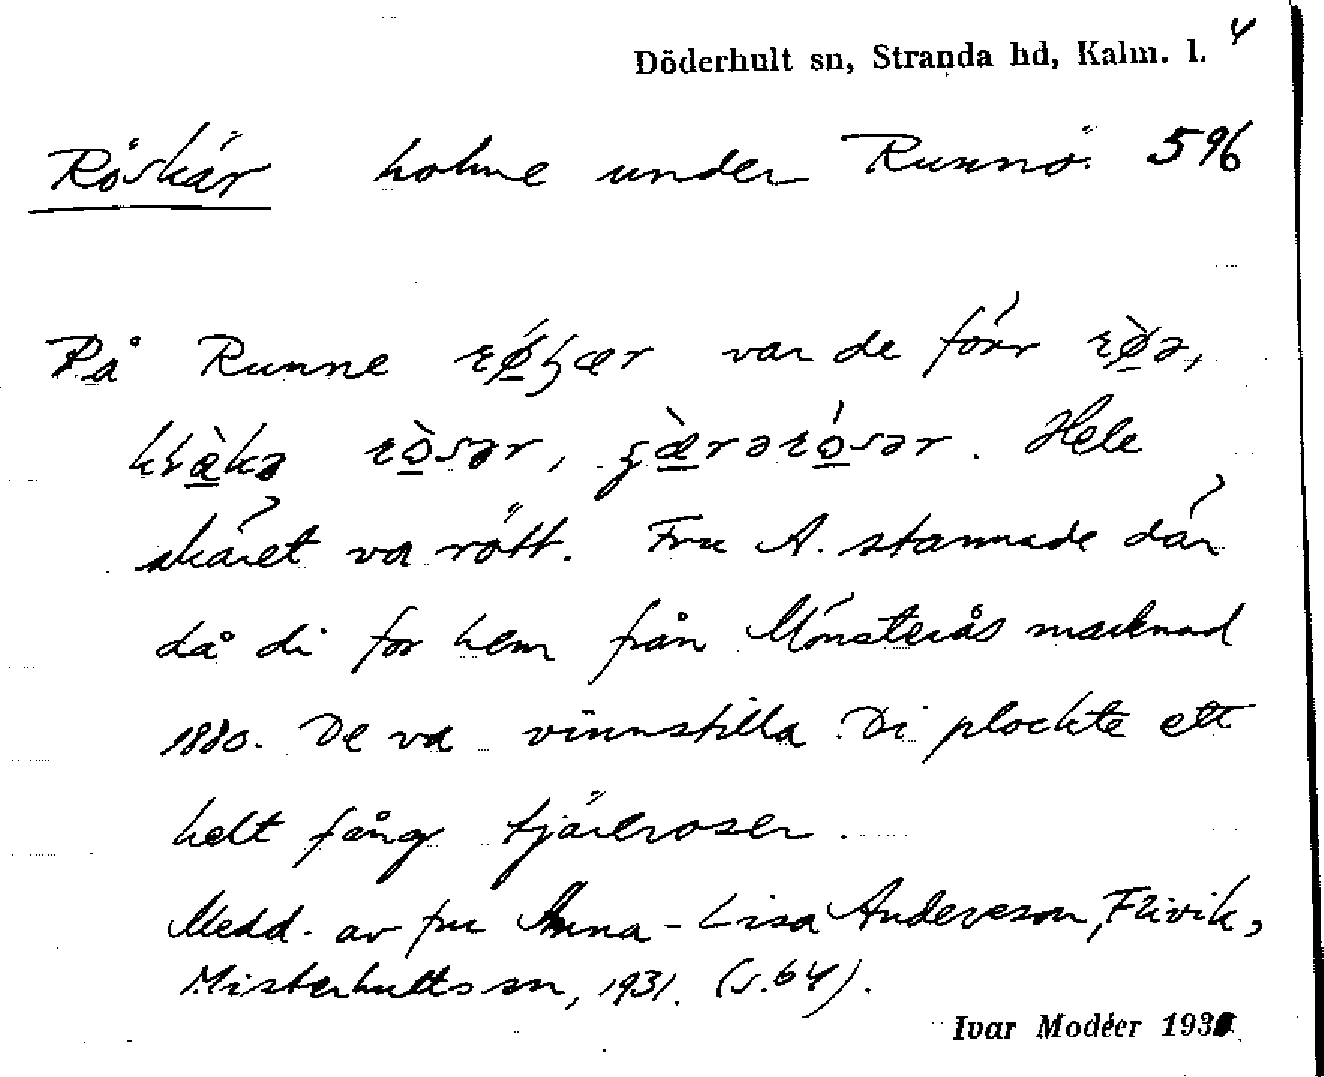 Döderhult sn, Stranda hd, Kalm. l. 4
Röskär holme under Runnö. 596
På Runne var de förr
Hele
skäret va rött. Fru A. stannade där
då di for hem från Mönsterås marknad
1880. De va vinnstilla Di plockte ett
helt fång tjäreroser.
Medd. av fru Anna-Lisa Andersson, Flivik,
Misterhults sn, 1931. (s.64).
Ivar Modéer 193